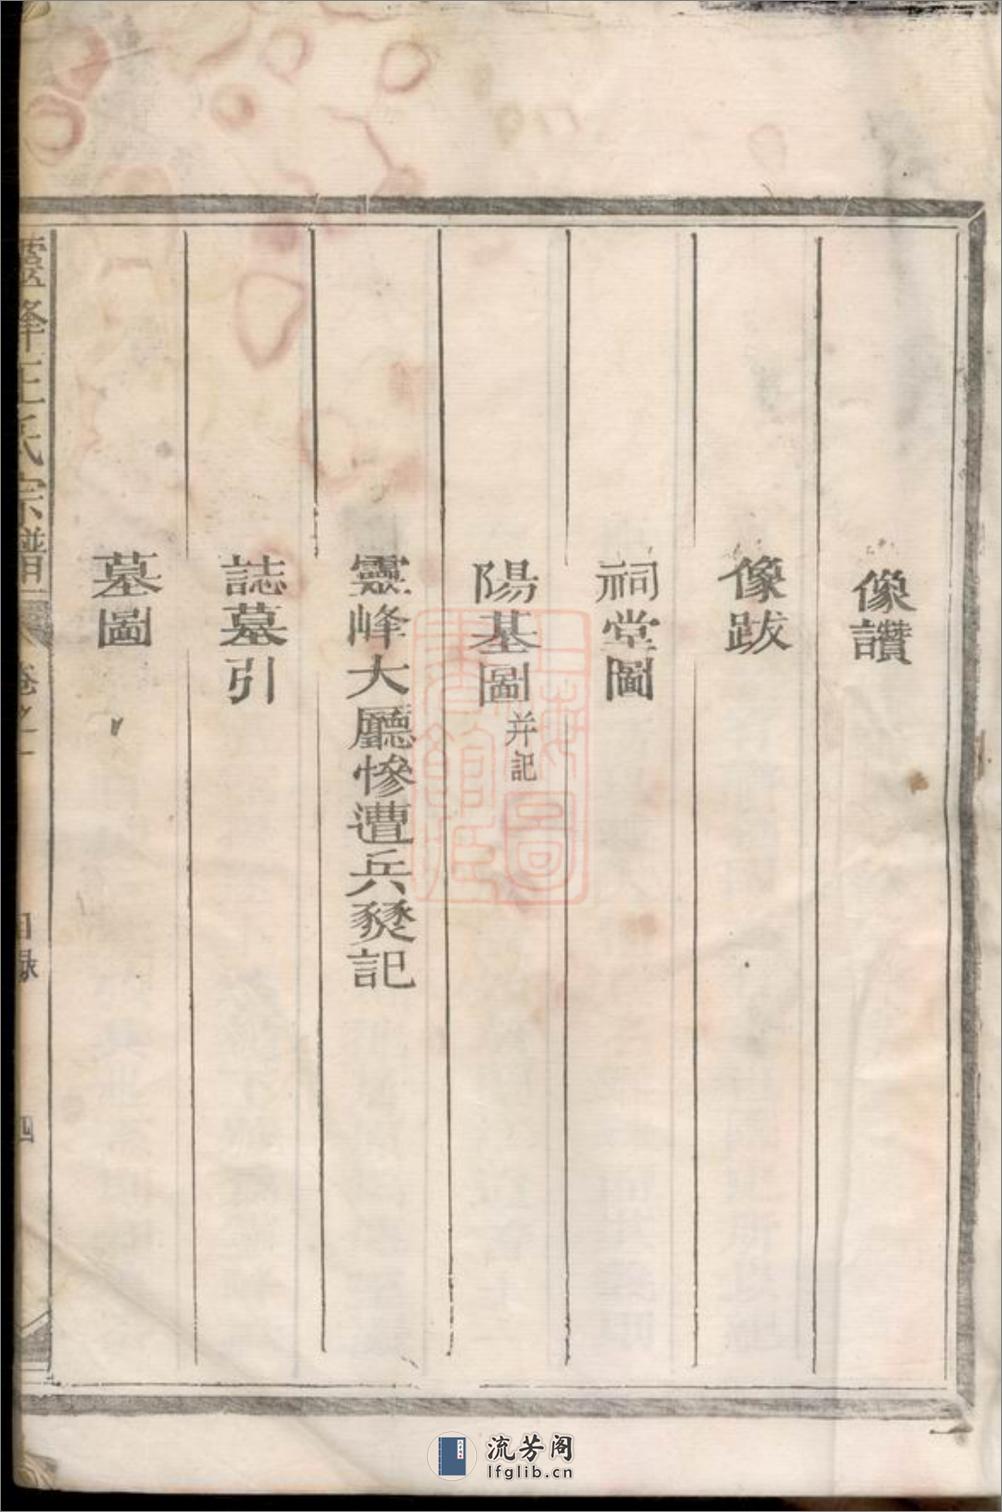 像讚
像跋
祠堂圖
陽基圖并記
靈峰大廳慘遭兵燹記
誌墓引
墓圖
靈峰王氏宗譜
卷之一
目錄
四
流芳阁
lfglib.cn